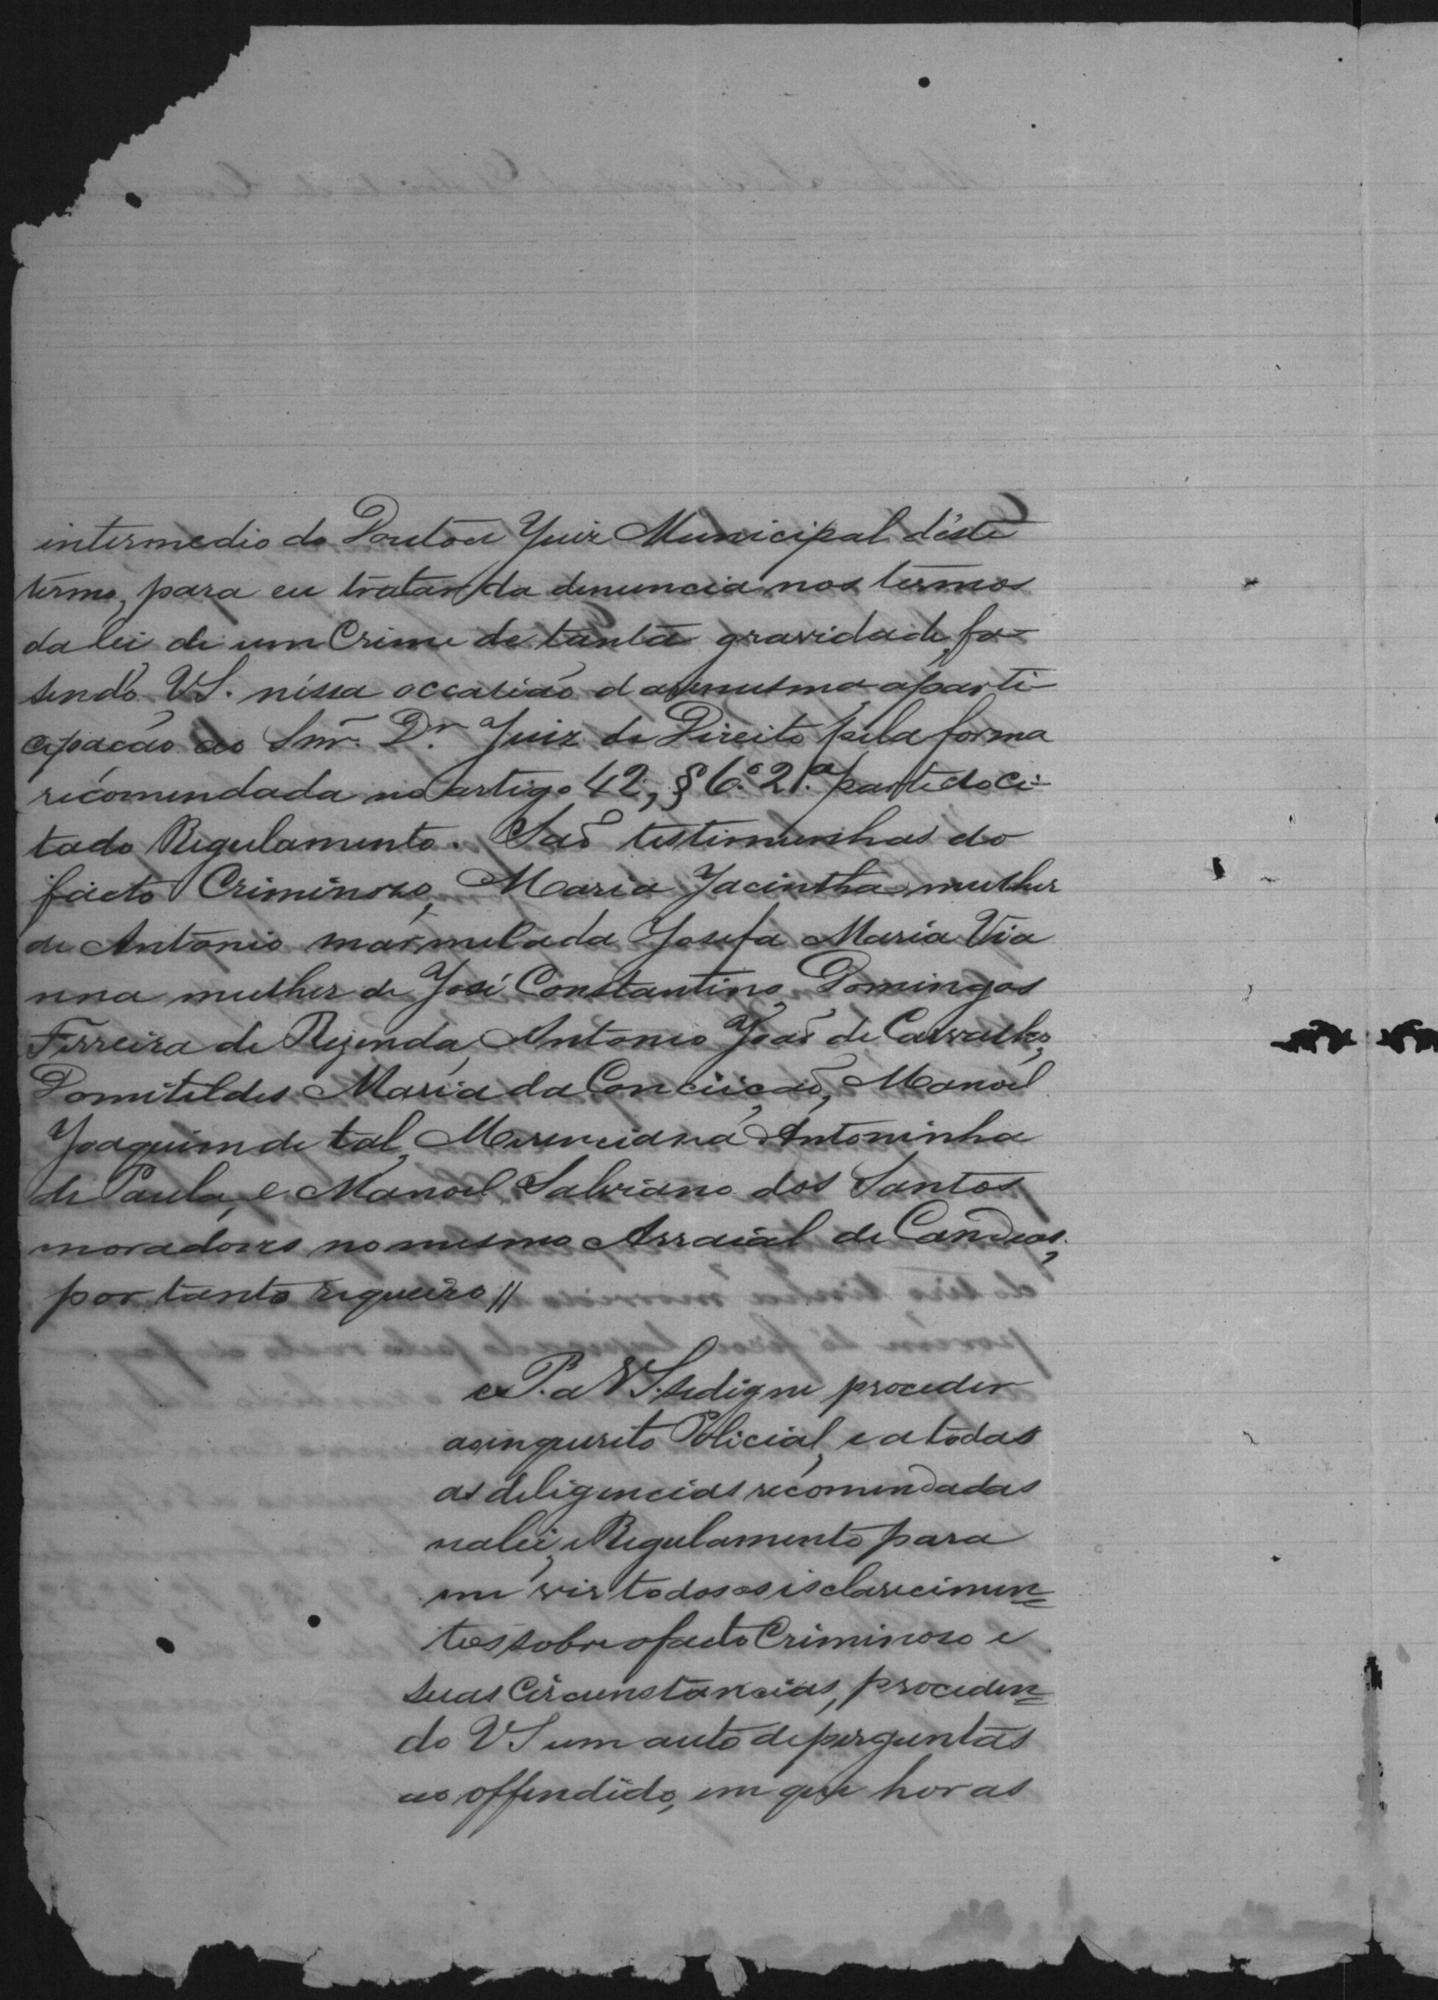 intermedio do Doutor Juiz Municipal d'éste
termo, para eu tratar da denuncia nos termos
da lei de um Crime de tanta gravidade, fa-
sendo VS. nessa occasião a mesma aparti-
cipacão ao Snr. Dr. Juiz de Direito pela forma
recomendada no artigo 42, § 6.º 2.ª parte do ci-
tado Regulamento. Saõ testimunhas do
facto Criminoso, Maria Jacintha mulher
de Antonio marmelada Josefa Maria Via
nna mulher de José Constantino, Domingos
Ferreira de Rezenda, Antonio Joaõ de Carvalho,
Domitildes Maria da Conceicaõ, Manoel
Joaquim de tal, Merenciana Antoninha
de Paula, e Manoel Salviano dos Santos
moradores no mesmo Arraial de Candeas,
por tanto requeiro //
P. a VS. se digne proceder
ao inquerito Policial, e a todas
as deligencias recomendadas
na lei, e Regulamento para
me vir todos os esclarecimen=
tos sobre o facto Criminoso e
suas Circunstancias, proceden=
do VS um auto de perguntas
ao offendido, em que horas